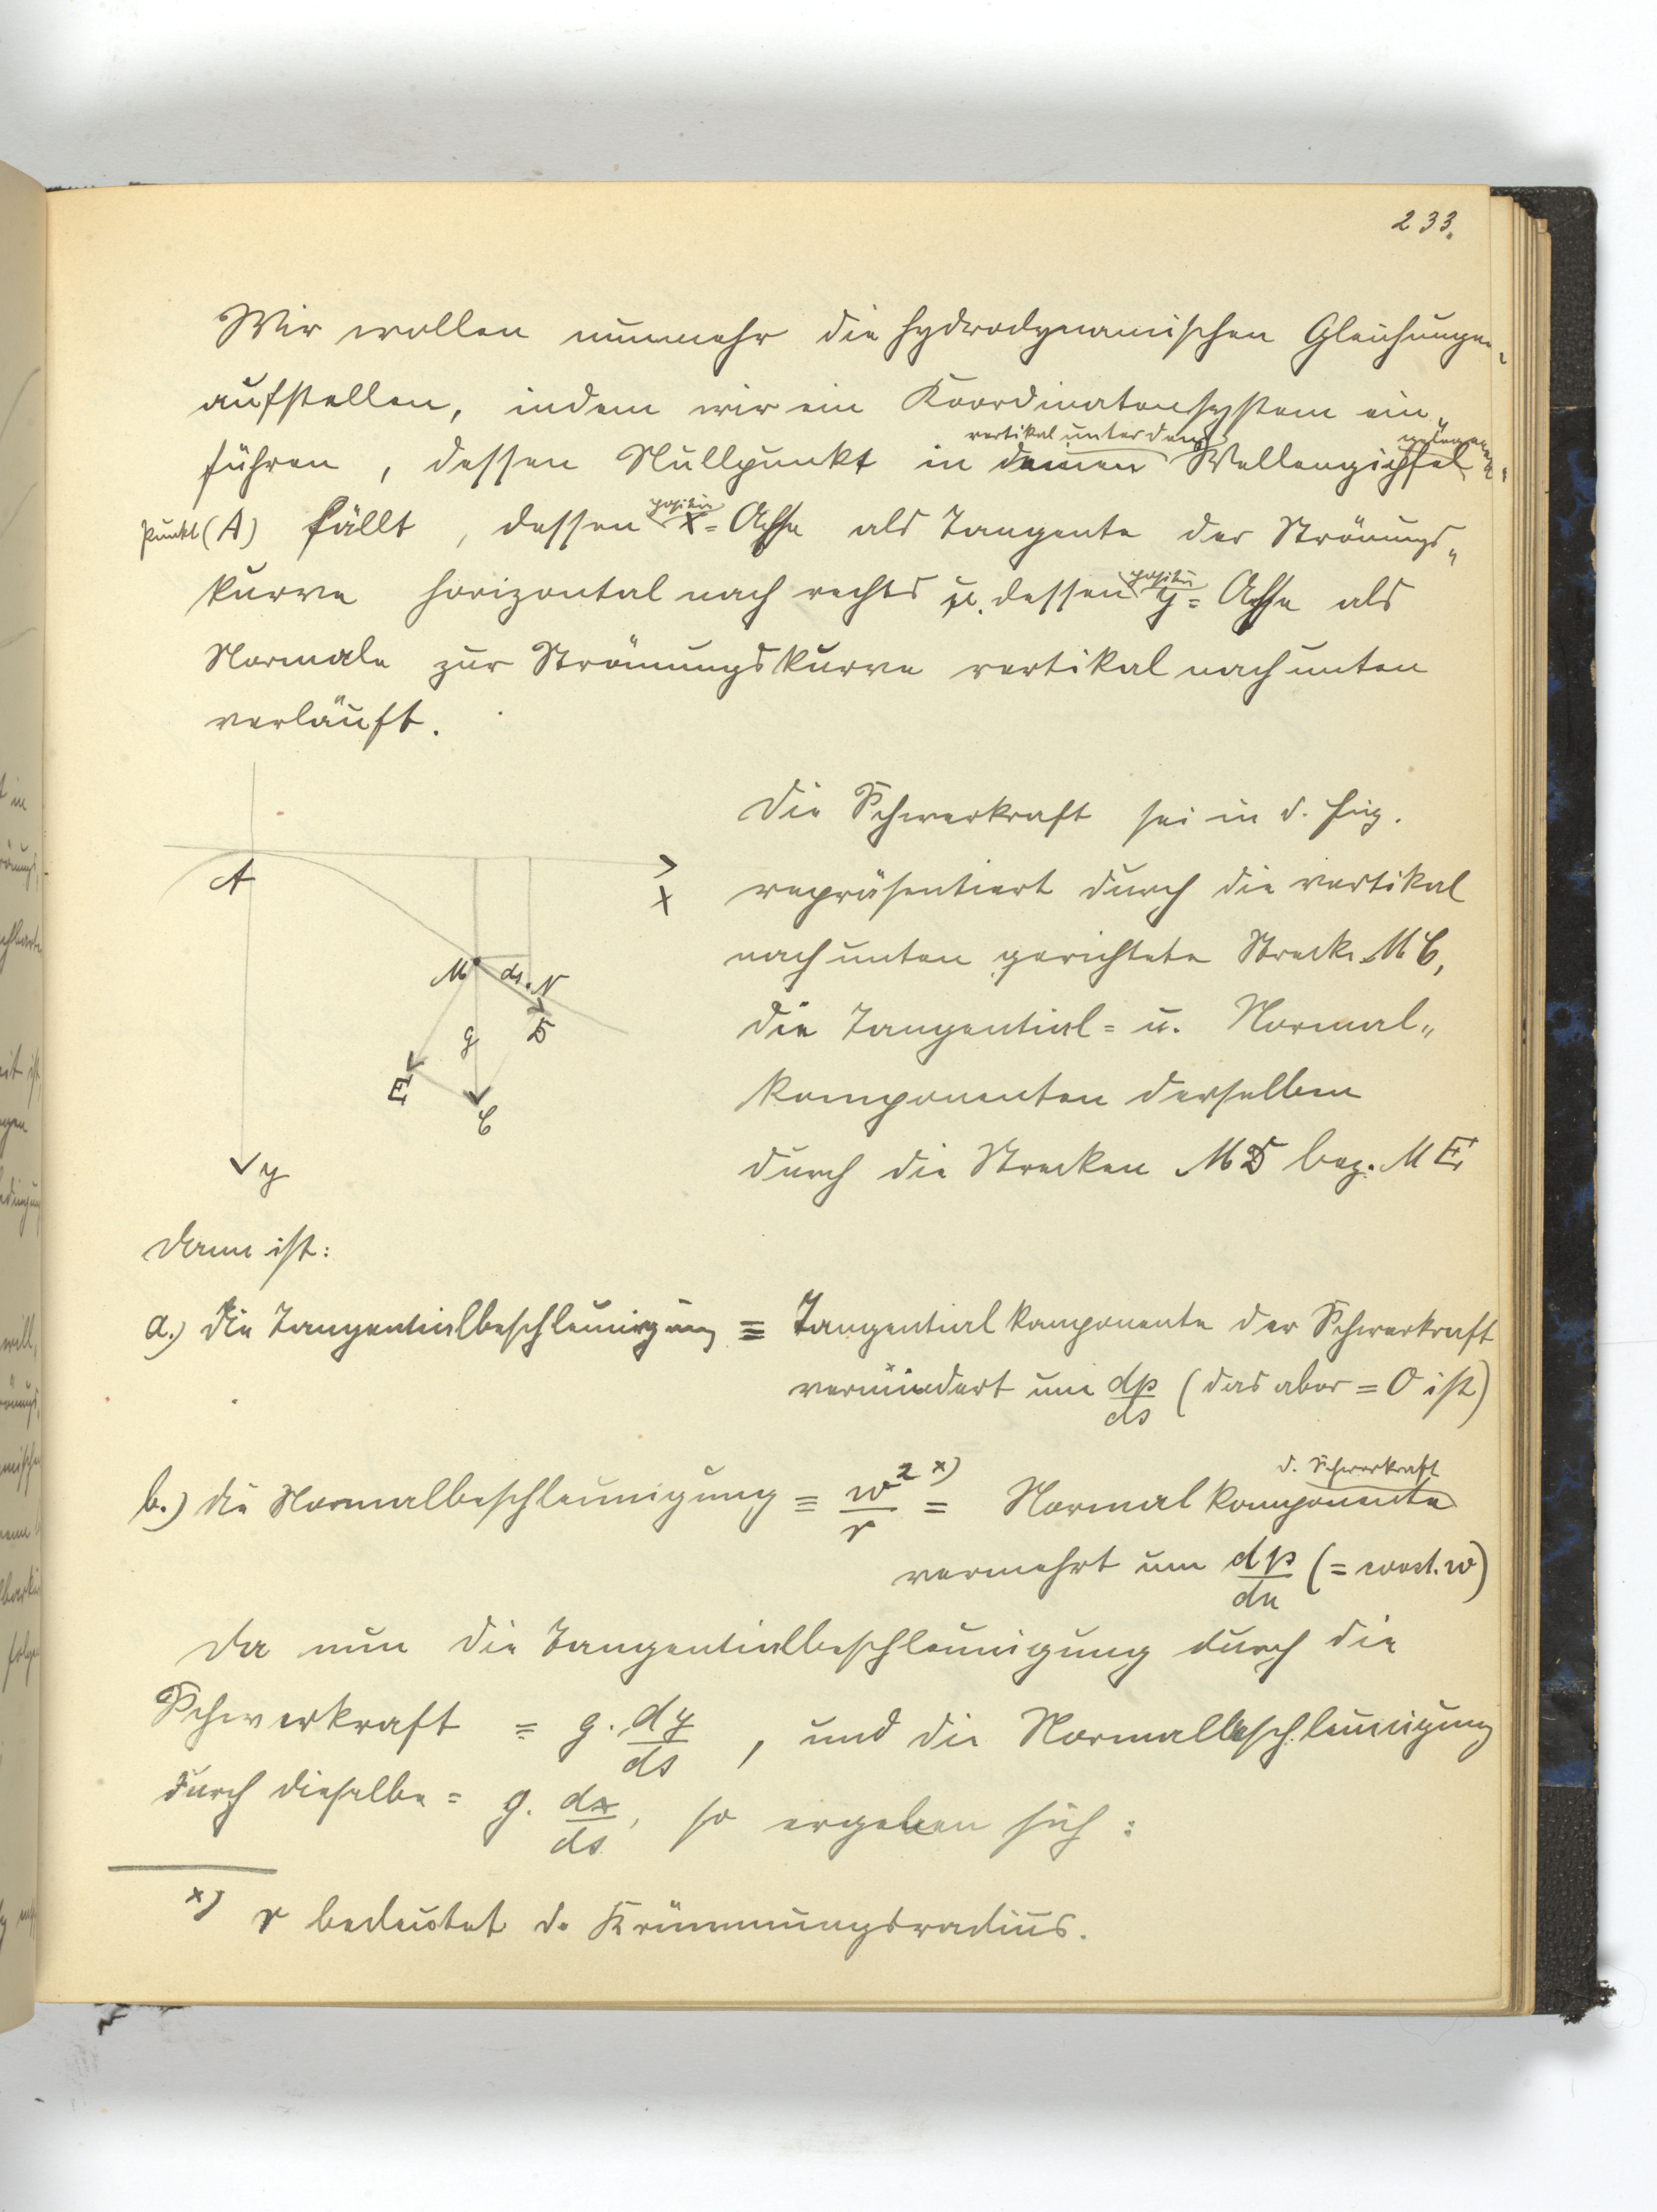 233.
Wir wollen nunmehr die hydrodynamischen Gleichungen
aufstellen, indem wir ein Koordinatensystem ein„
vertikal unter dem gelegenen
führen, dessen Nullpunkt in einen Wellengipfel„
punkt (A) fällt, dessen positiv x=Achse als Tangente der Strömungs„
kurve horizontal nach rechts u. dessen positiv y=Achse als
Normale zur Strömungskurve vertikal nach unten
verläuft.
Die Schwerkraft sei in d. Fig.
repräsentiert durch die vertikal
nach unten gerichtete Strecke MC,
die Tangential= u. Normal„
komponenten derselben
durch die Strecken MD bez. ME
A
x
M
ds
N
D
g
E
C
y
Dann ist:
a.) die Tangentialbeschleunigung = Tangentialkomponente der Schwerkraft
vermindert um dp/ds (das aber = 0 ist)
d. Schwerkraft
b.) die Normalbeschleunigung = w²/r x) = Normalkomponente
vermehrt um dp/dn (= const. w)
Da nun die Tangentialbeschleunigung durch die
Schwerkraft = g. dy/ds, und die Normalbeschleunigung
durch dieselbe = g. dx/ds, so ergeben sich:
x) r bedeutet d. Krümmungsradius.